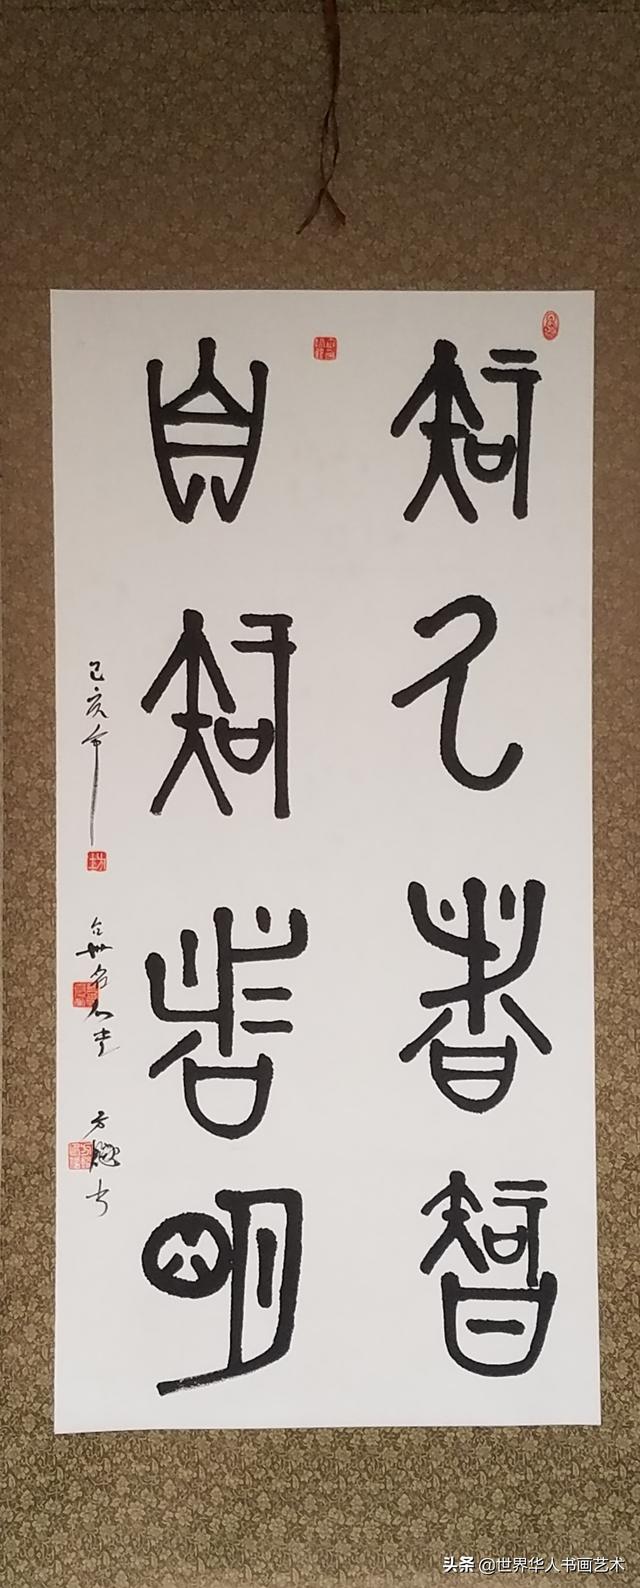 知人者智
自知者明
己亥年
方 书
头条 @世界华人书画艺术